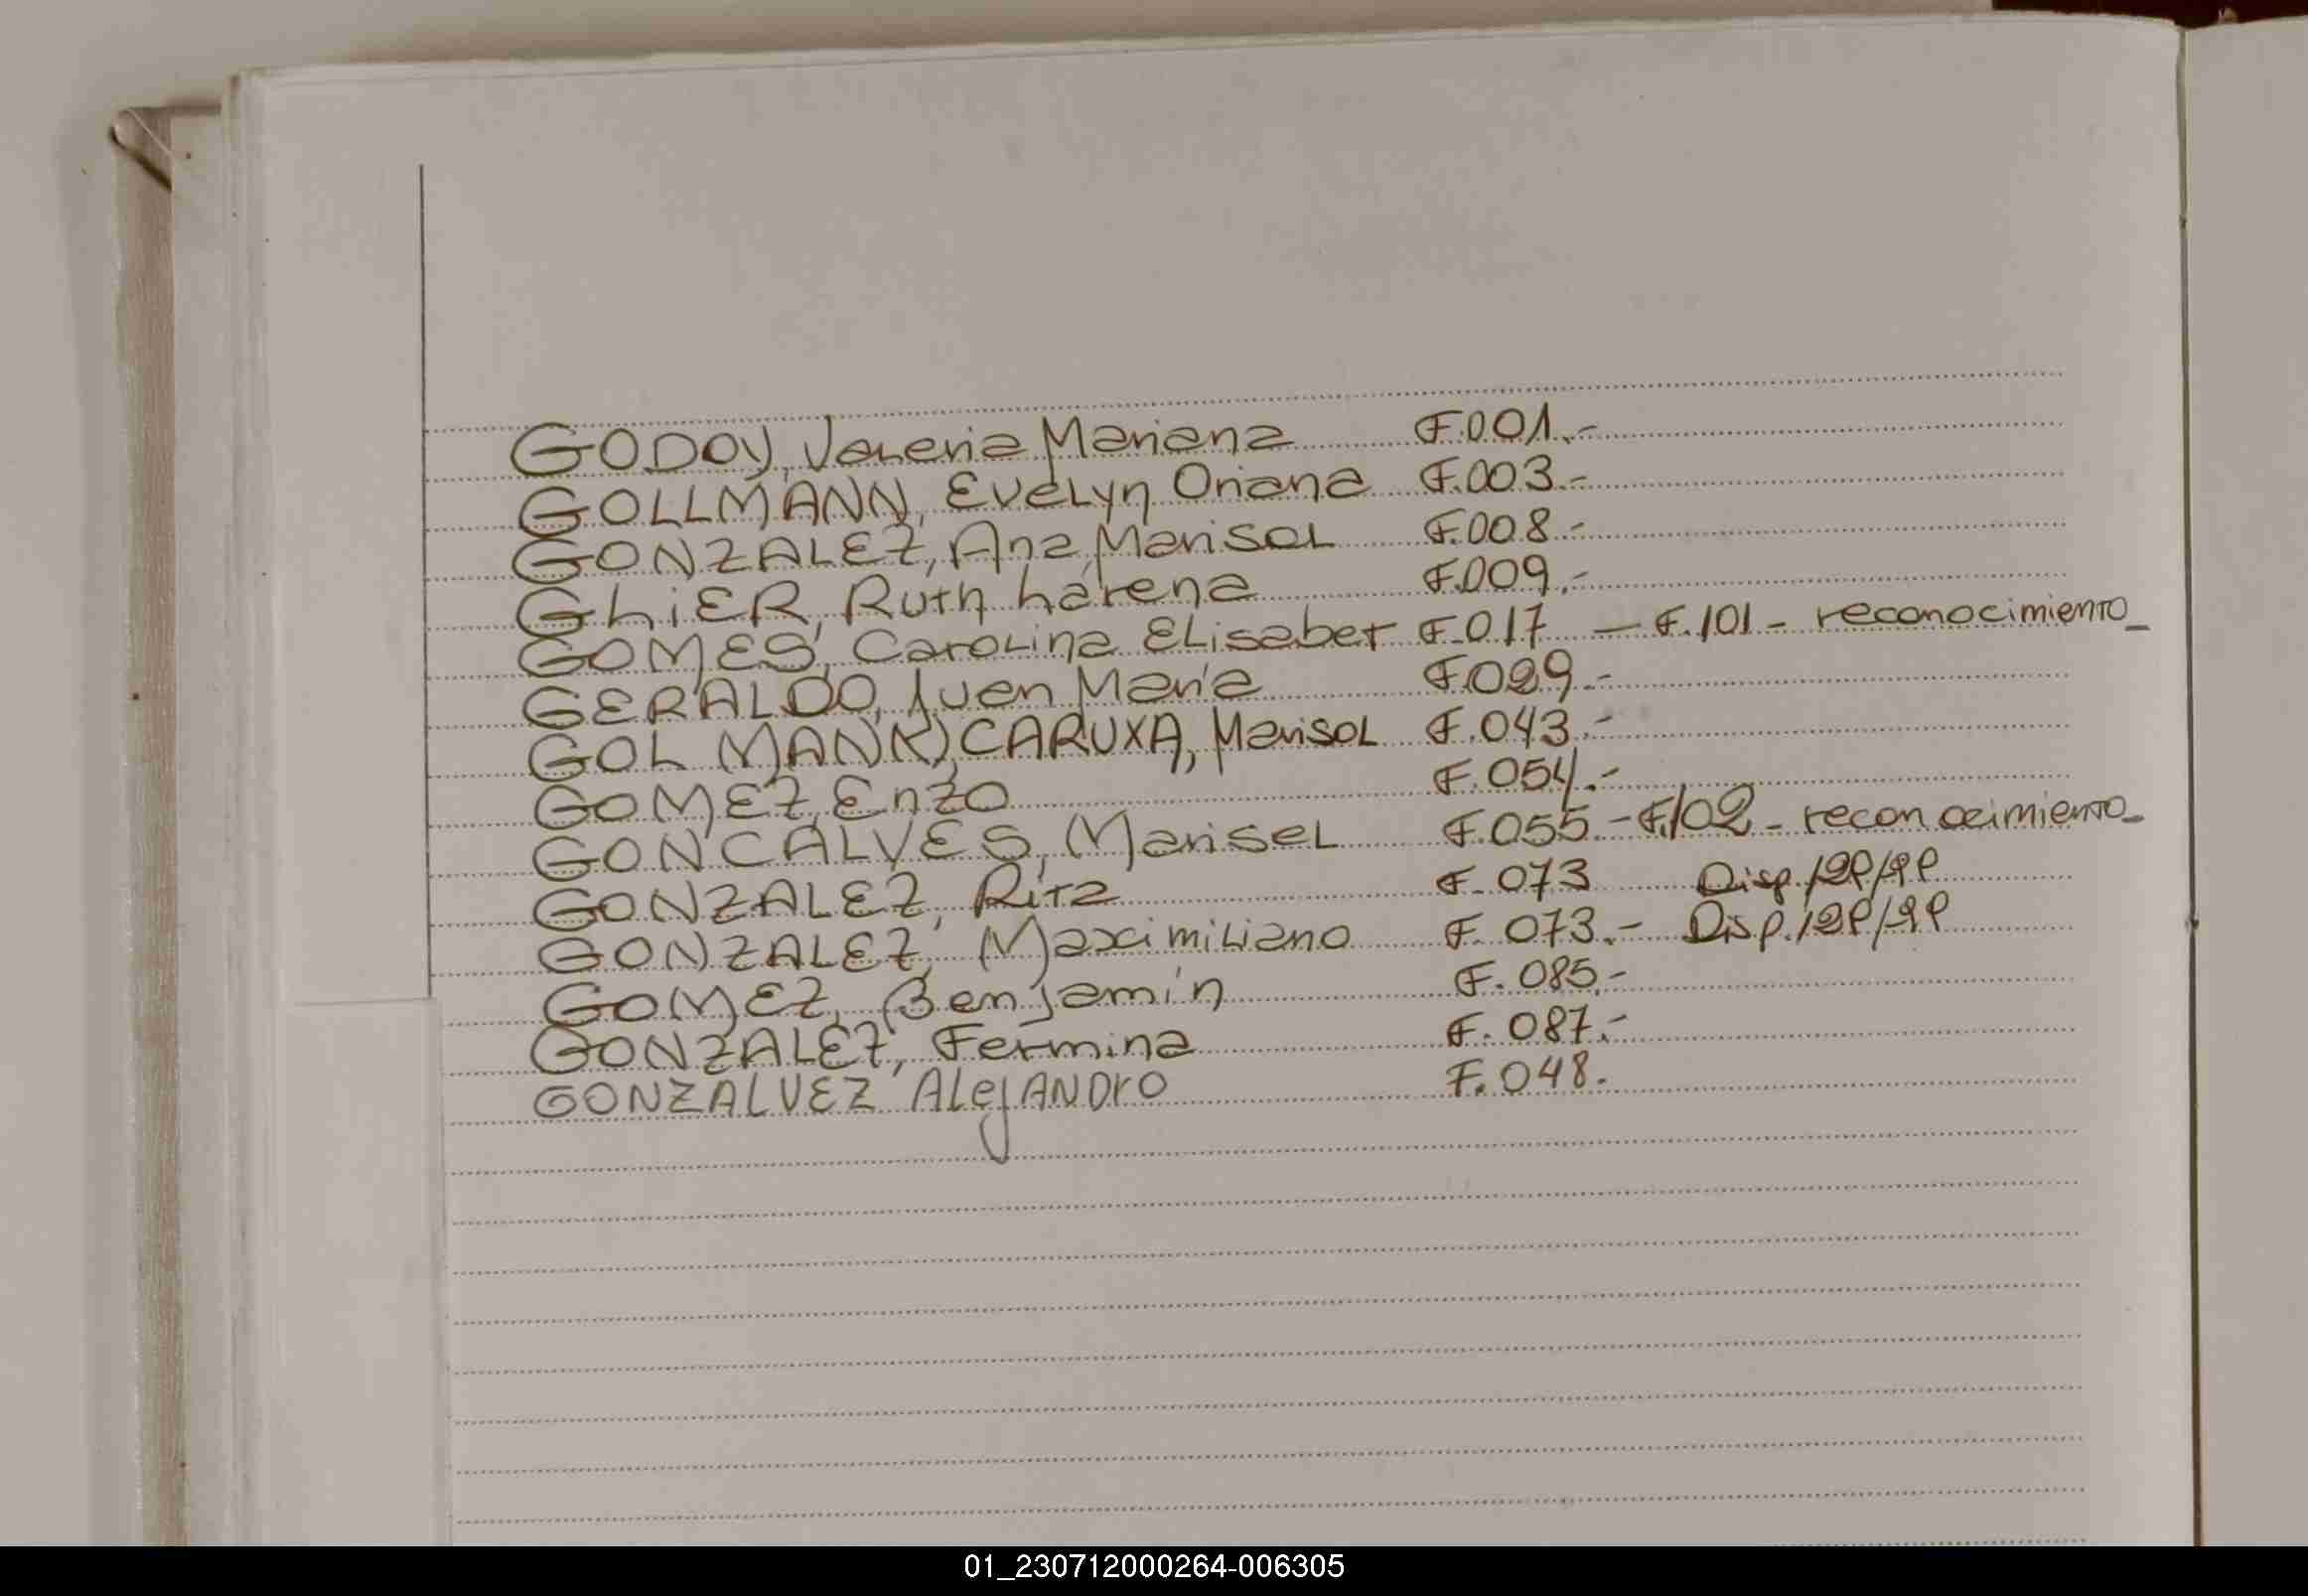 GODOY, Valeria Mariana F.001.-
GOLLMANN, Evelyn Oriana F.003.-
GONZALEZ, Ana Marisol F.008.-
GHIER, Ruth Larena F.009.-
GOMES, Carolina Elisabet F.017 — F.101 - reconocimiento_
GERALDO, Juan María F.029.-
GOL MANN, CARUXA, Marisol F.043.-
GOMEZ, Enzo F.054.-
GONCALVES, Marisel F.055.- F.102 - reconocimiento_
GONZALEZ, Rita F. 073 Disp.
GONZALEZ, Maximiliano F. 073.- Disp.
GOMEZ, Benjamín F. 085.-
GONZALEZ, Fermina F. 087.-
GONZALVEZ AlejANDrO F. 048.
01_230712000264-006305